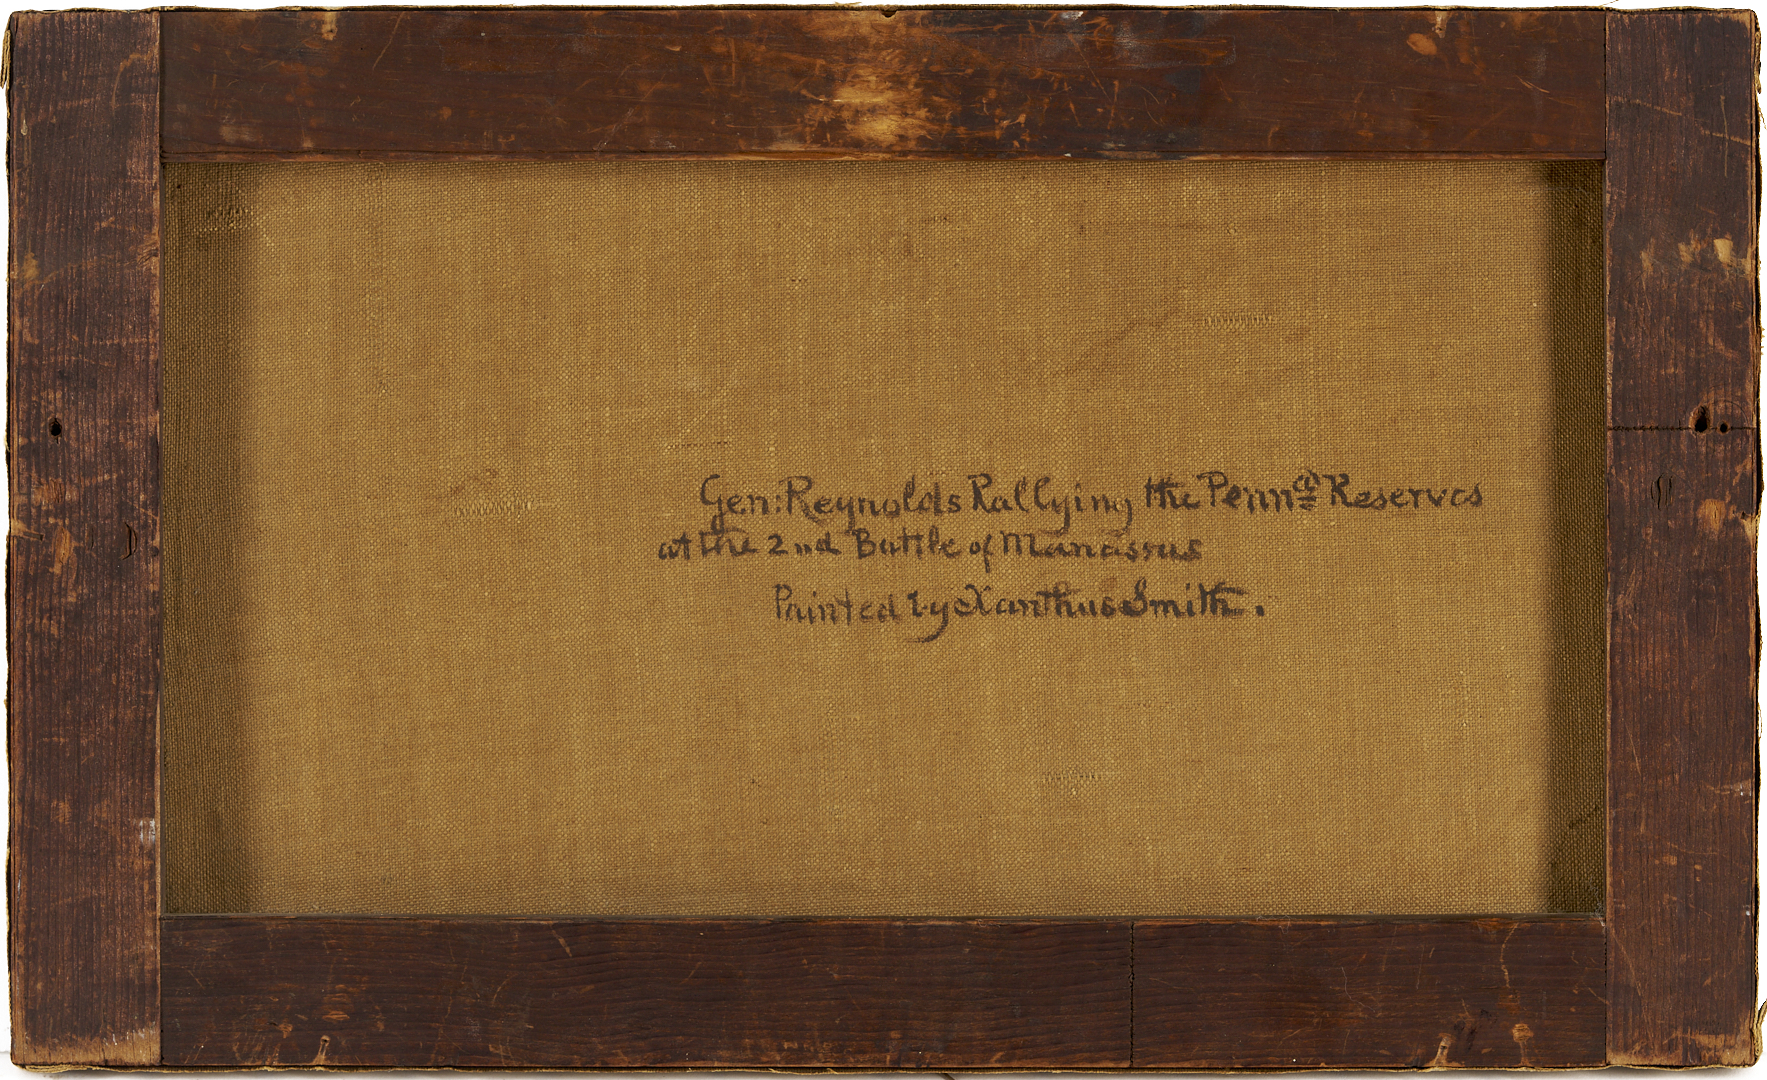 Gen: Reynolds Rallying the Penna Reserves
at the 2nd Battle of Manassus
Painted by Xanthus Smith.